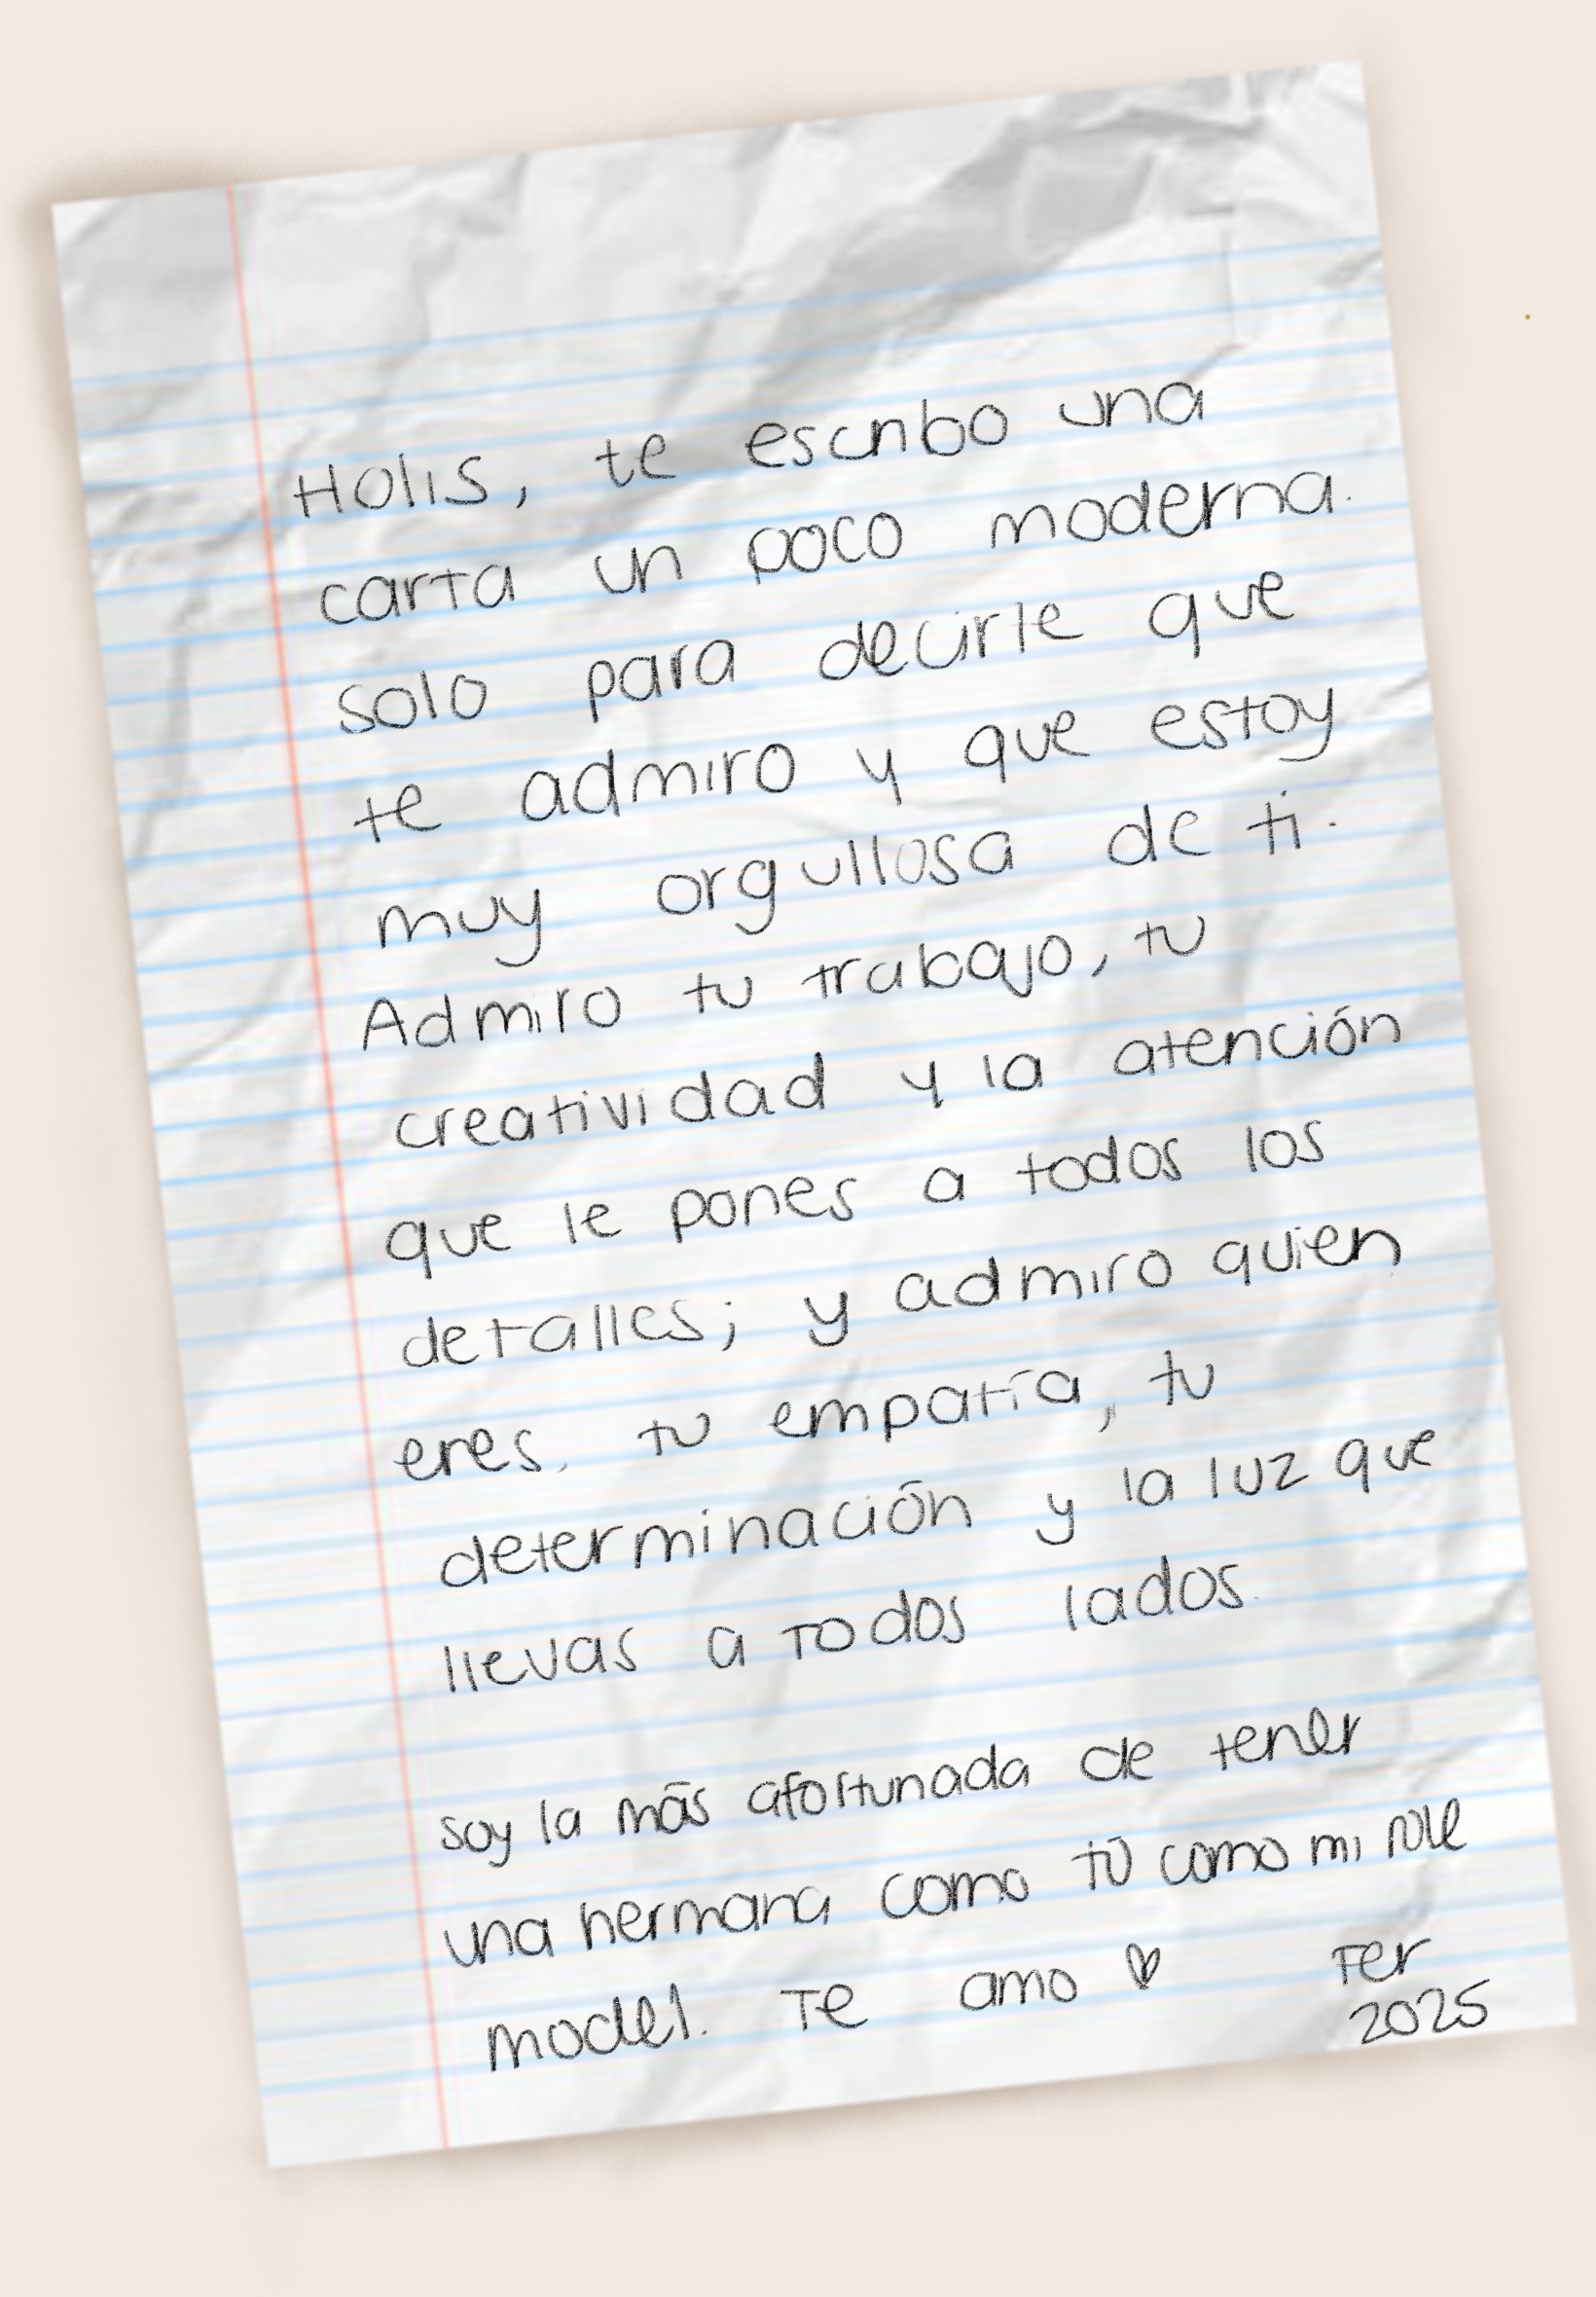 Holis, te escribo una
carta un poco moderna.
solo para decirle que
te admiro y que estoy
muy orgullosa de ti.
Admiro tu trabajo, tu
creatividad y la atención
que le pones a todos los
detalles; y admiro quien
eres. tu empatía, tu
determinación y la luz que
llevas a todos lados.
soy la más afortunada de tener
una hermana como tú como mi role
model. Te amo ♡ Fer
2025